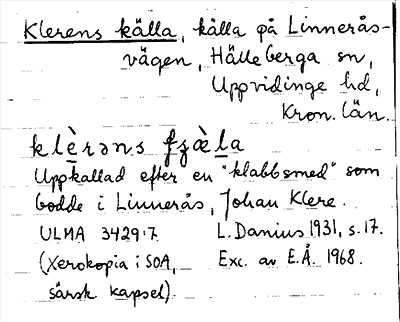 Klerens källa, källa på Linnerås-
vägen, Hälleberga sn,
Uppvidinge hd,
Kron. län.
klèrəns ʃʒæ̀la
Uppkallad efter en "klabbsmed" som
bodde i Linnerås, Johan Klere.
ULMA 3429:7. L. Danius 1931, s. 17.
(Xerokopia i SOA, Exc. av E.Å. 1968.
särsk kapsel).